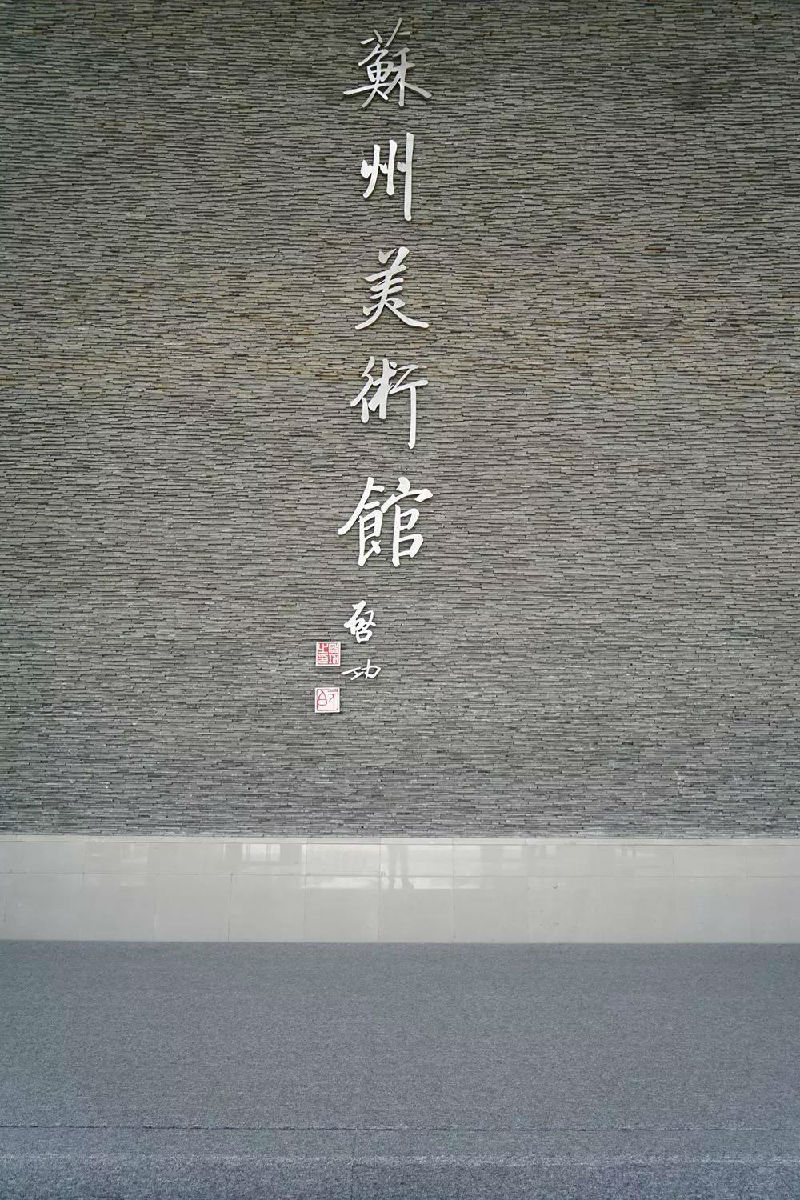 蘇州美術館
啓功